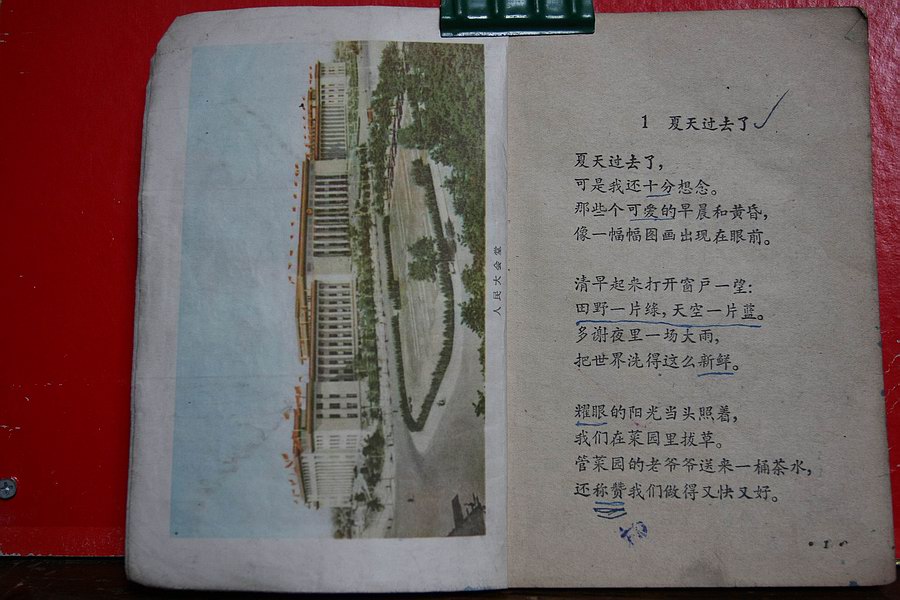 人民大会堂
1 夏天过去了
夏天过去了,
可是我还十分想念。
那些个可爱的早晨和黄昏,
像一幅幅图画出现在眼前。
清早起来打开窗户一望:
田野一片绿,天空一片蓝。
多谢夜里一场大雨,
把世界洗得这么新鲜。
耀眼的阳光当头照着,
我们在菜园里拔草。
管菜园的老爷爷送来一桶茶水,
还称赞我们做得又快又好。
• 1 •